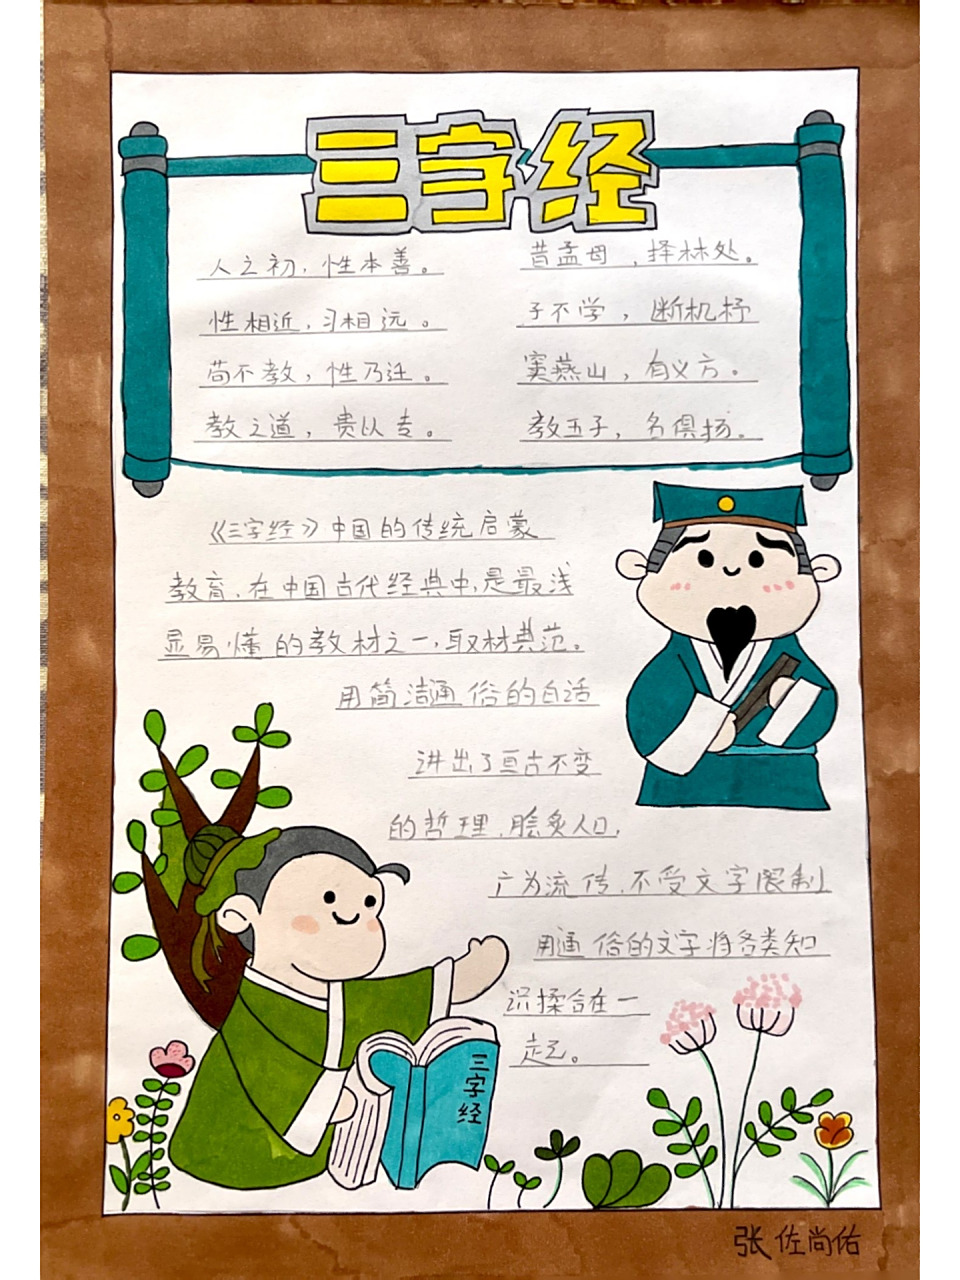 三字经
人之初，性本善。
性相近，习相远。
苟不教，性乃迁。
教之道，贵以专。
昔孟母，择林处。
子不学，断机杼
窦燕山，有义方。
教五子，名俱扬。
《三字经》中国的传统启蒙
教育，在中国古代经典中，是最浅
显易懂的教材之一，取材典范。
用简洁通俗的白话
讲出了亘古不变
的哲理，脍炙人口，
广为流传，不受文字限制
用通俗的文字将各类知
识揉合在一
起。
三字经
张佐尚佑